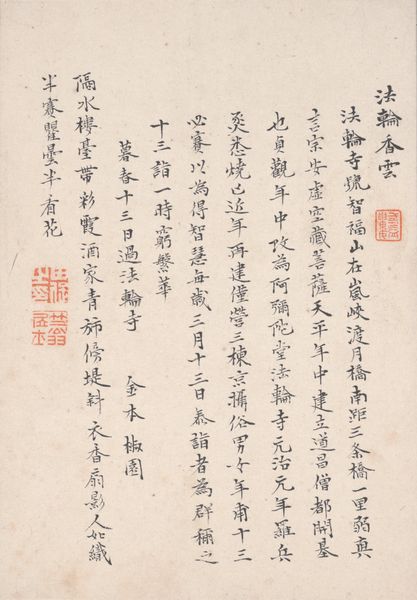 法輪香雲
法輪寺號智福山在嵐峽渡月橋南距三条橋一里弱真
言宗安虚空藏菩薩天平年中建立道昌僧都開基
也貞觀年中改為阿彌陀堂法輪寺元治元年罹兵
燹悉燒亡近年再建僅營三棟京攝俗男女年甫十三
必賽以為得智慧每歲三月十三日泰詣者為群稱之
十三詣一時窮繁華
暮春十三日過法輪寺
金本椒園
隔水樓臺帶彩霞酒家青旆傍堤斜衣香扇影人如織
半賽瞿曇半看花